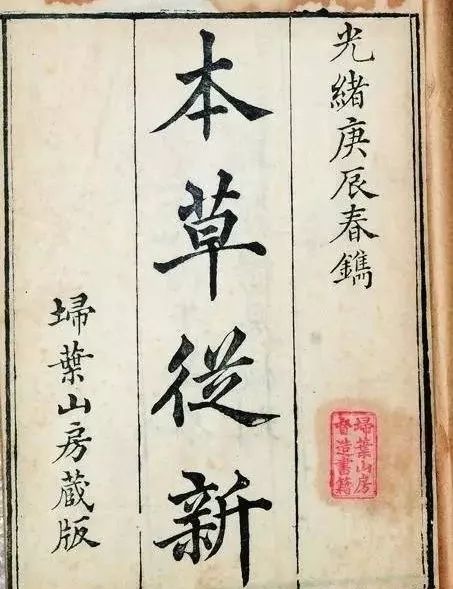 光緒庚辰春鐫
本草從新
埽葉山房藏版
埽葉山房
督造書籍